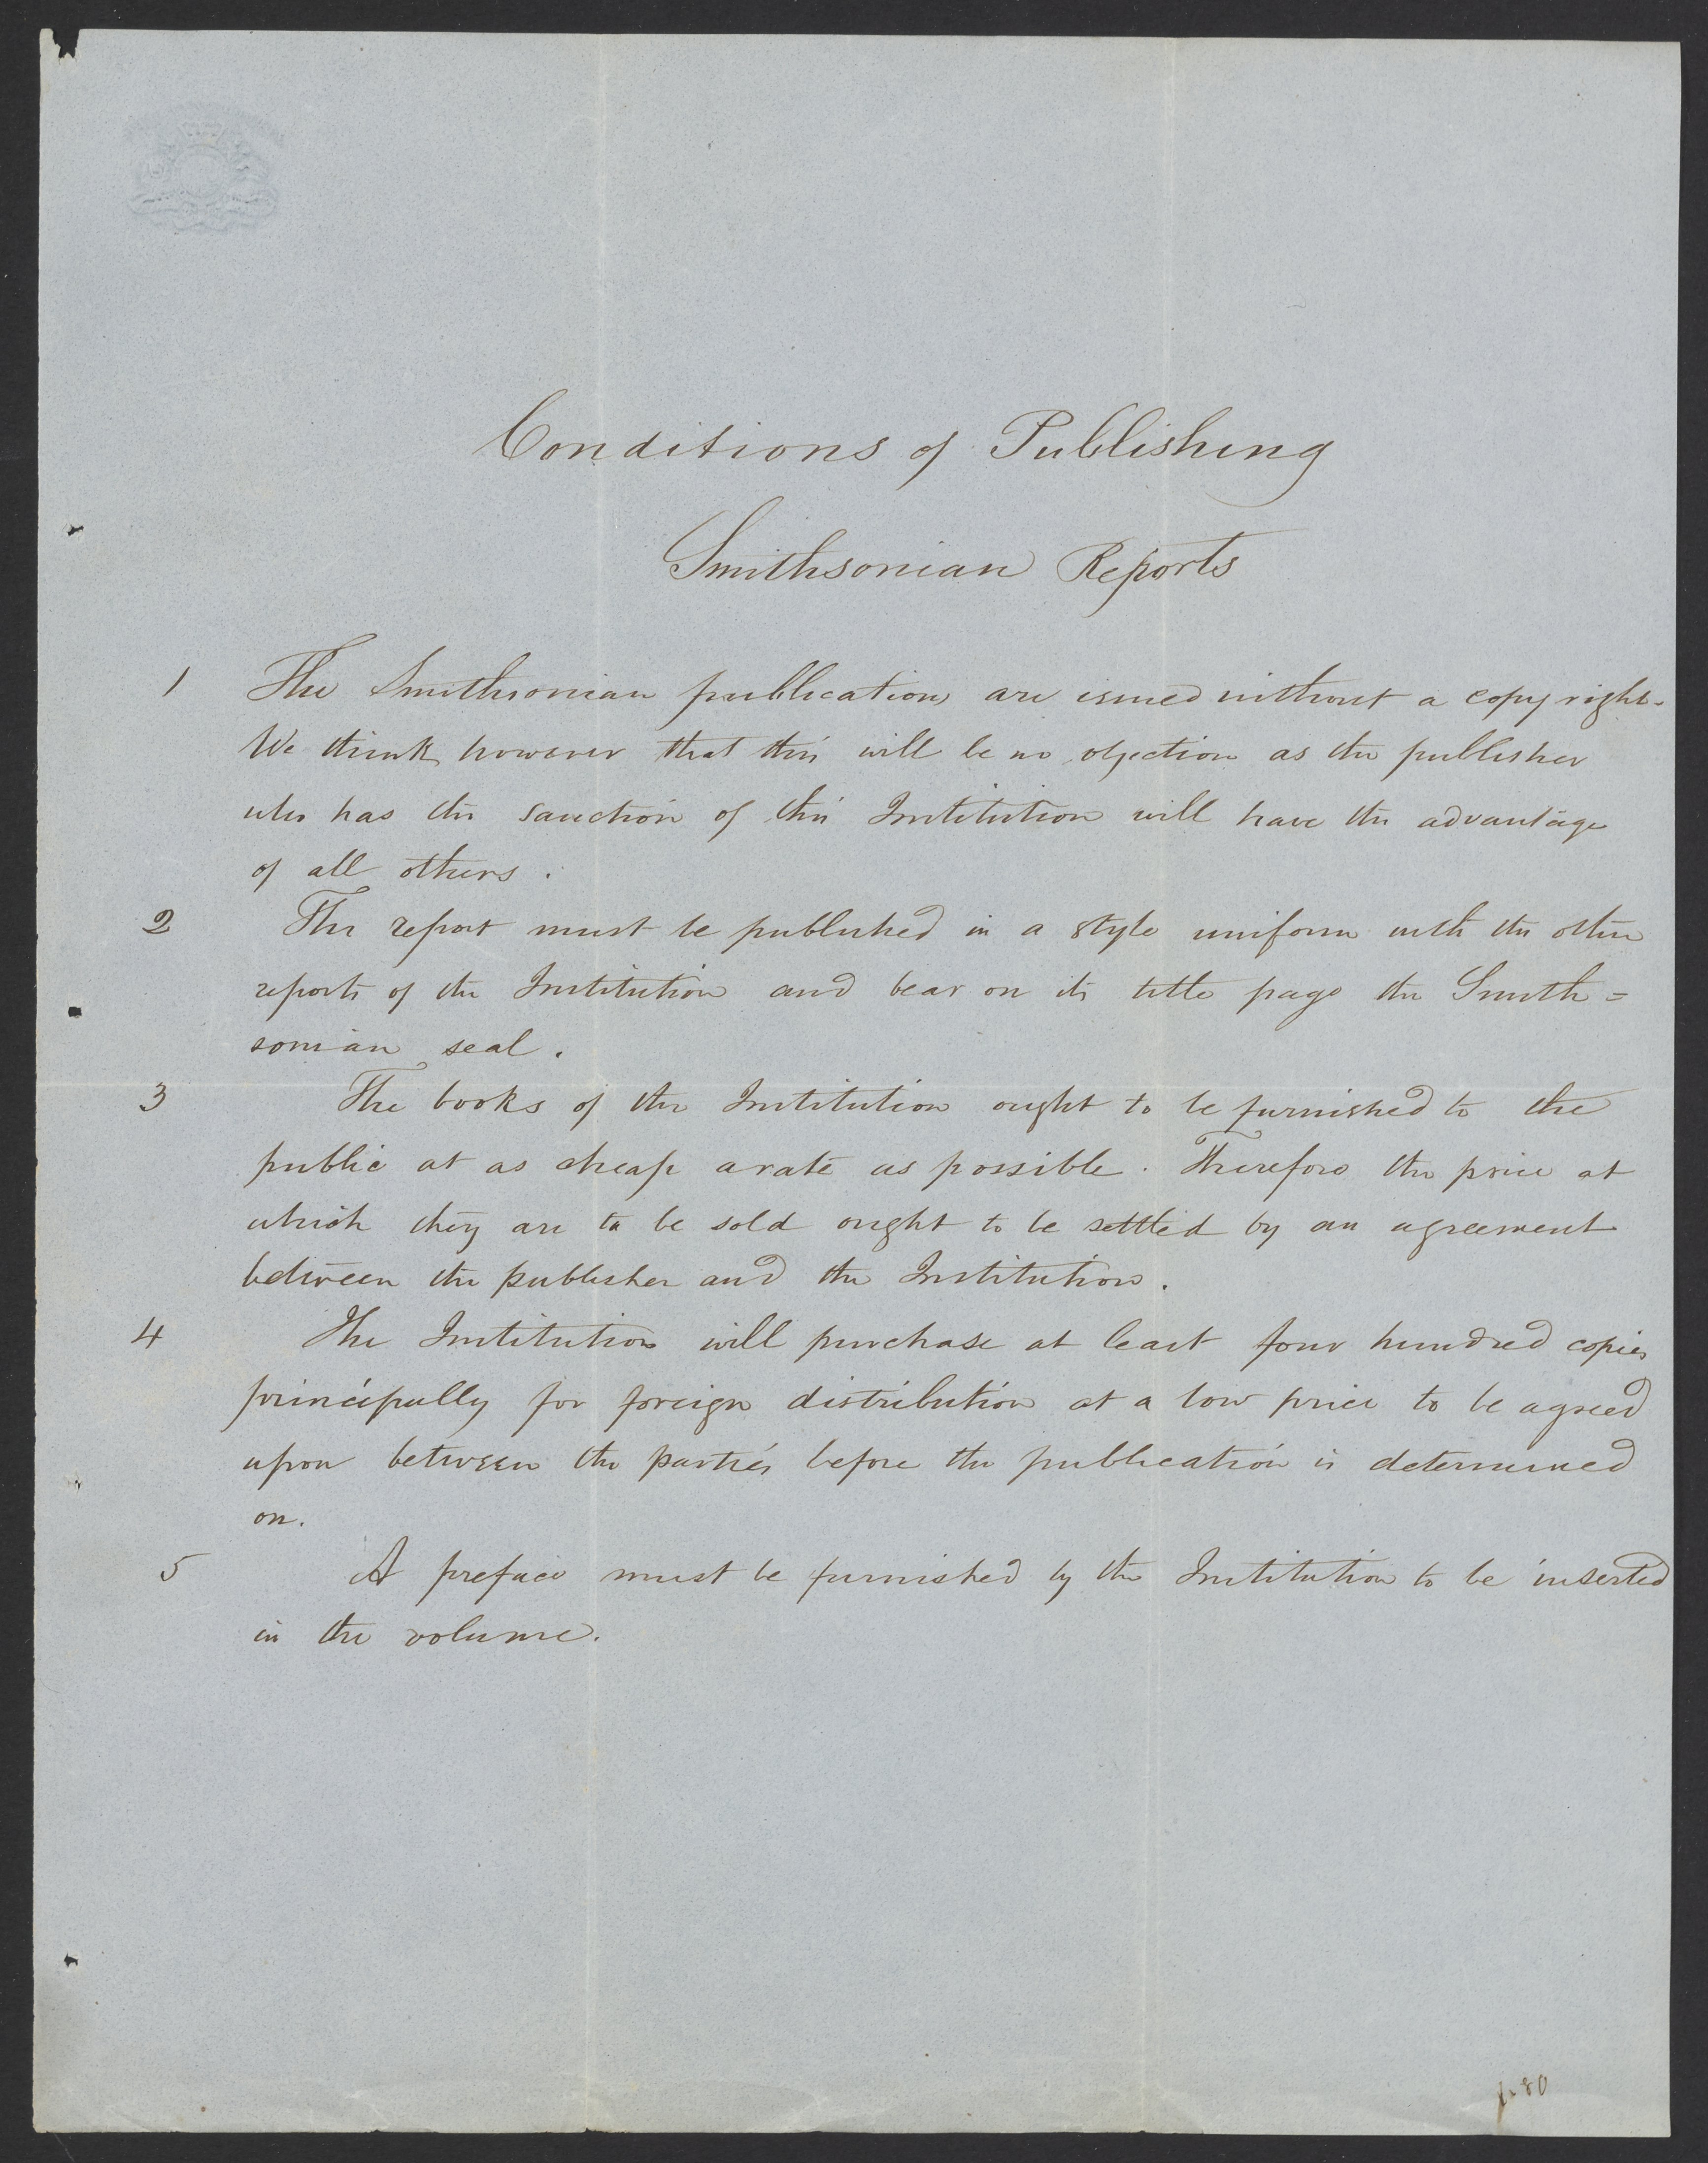 Conditions of Publishing
Smithsonian Reports
1 The Smithsonian publications are issued without a copy right.
We think however that this will be no objection as the publisher
who has the sanction of this Institution will have the advantage
of all others.
2 The report must be published in a style uniform with the other
reports of the Institution and bear on its title page the Smith=
sonian seal.
3 The books of the Institution ought to be furnished to the
public at as cheap a rate as possible. Therefore the price at
which they are to be sold ought to be settled by an agreement
between the publisher and the Institution.
4 The Institution will purchase at least four hundred copies
principally for foreign distribution at a low price to be agreed
upon between the parties before the publication is determined
on.
5 A preface must be furnished by the Institution to be inserted
in the volume.